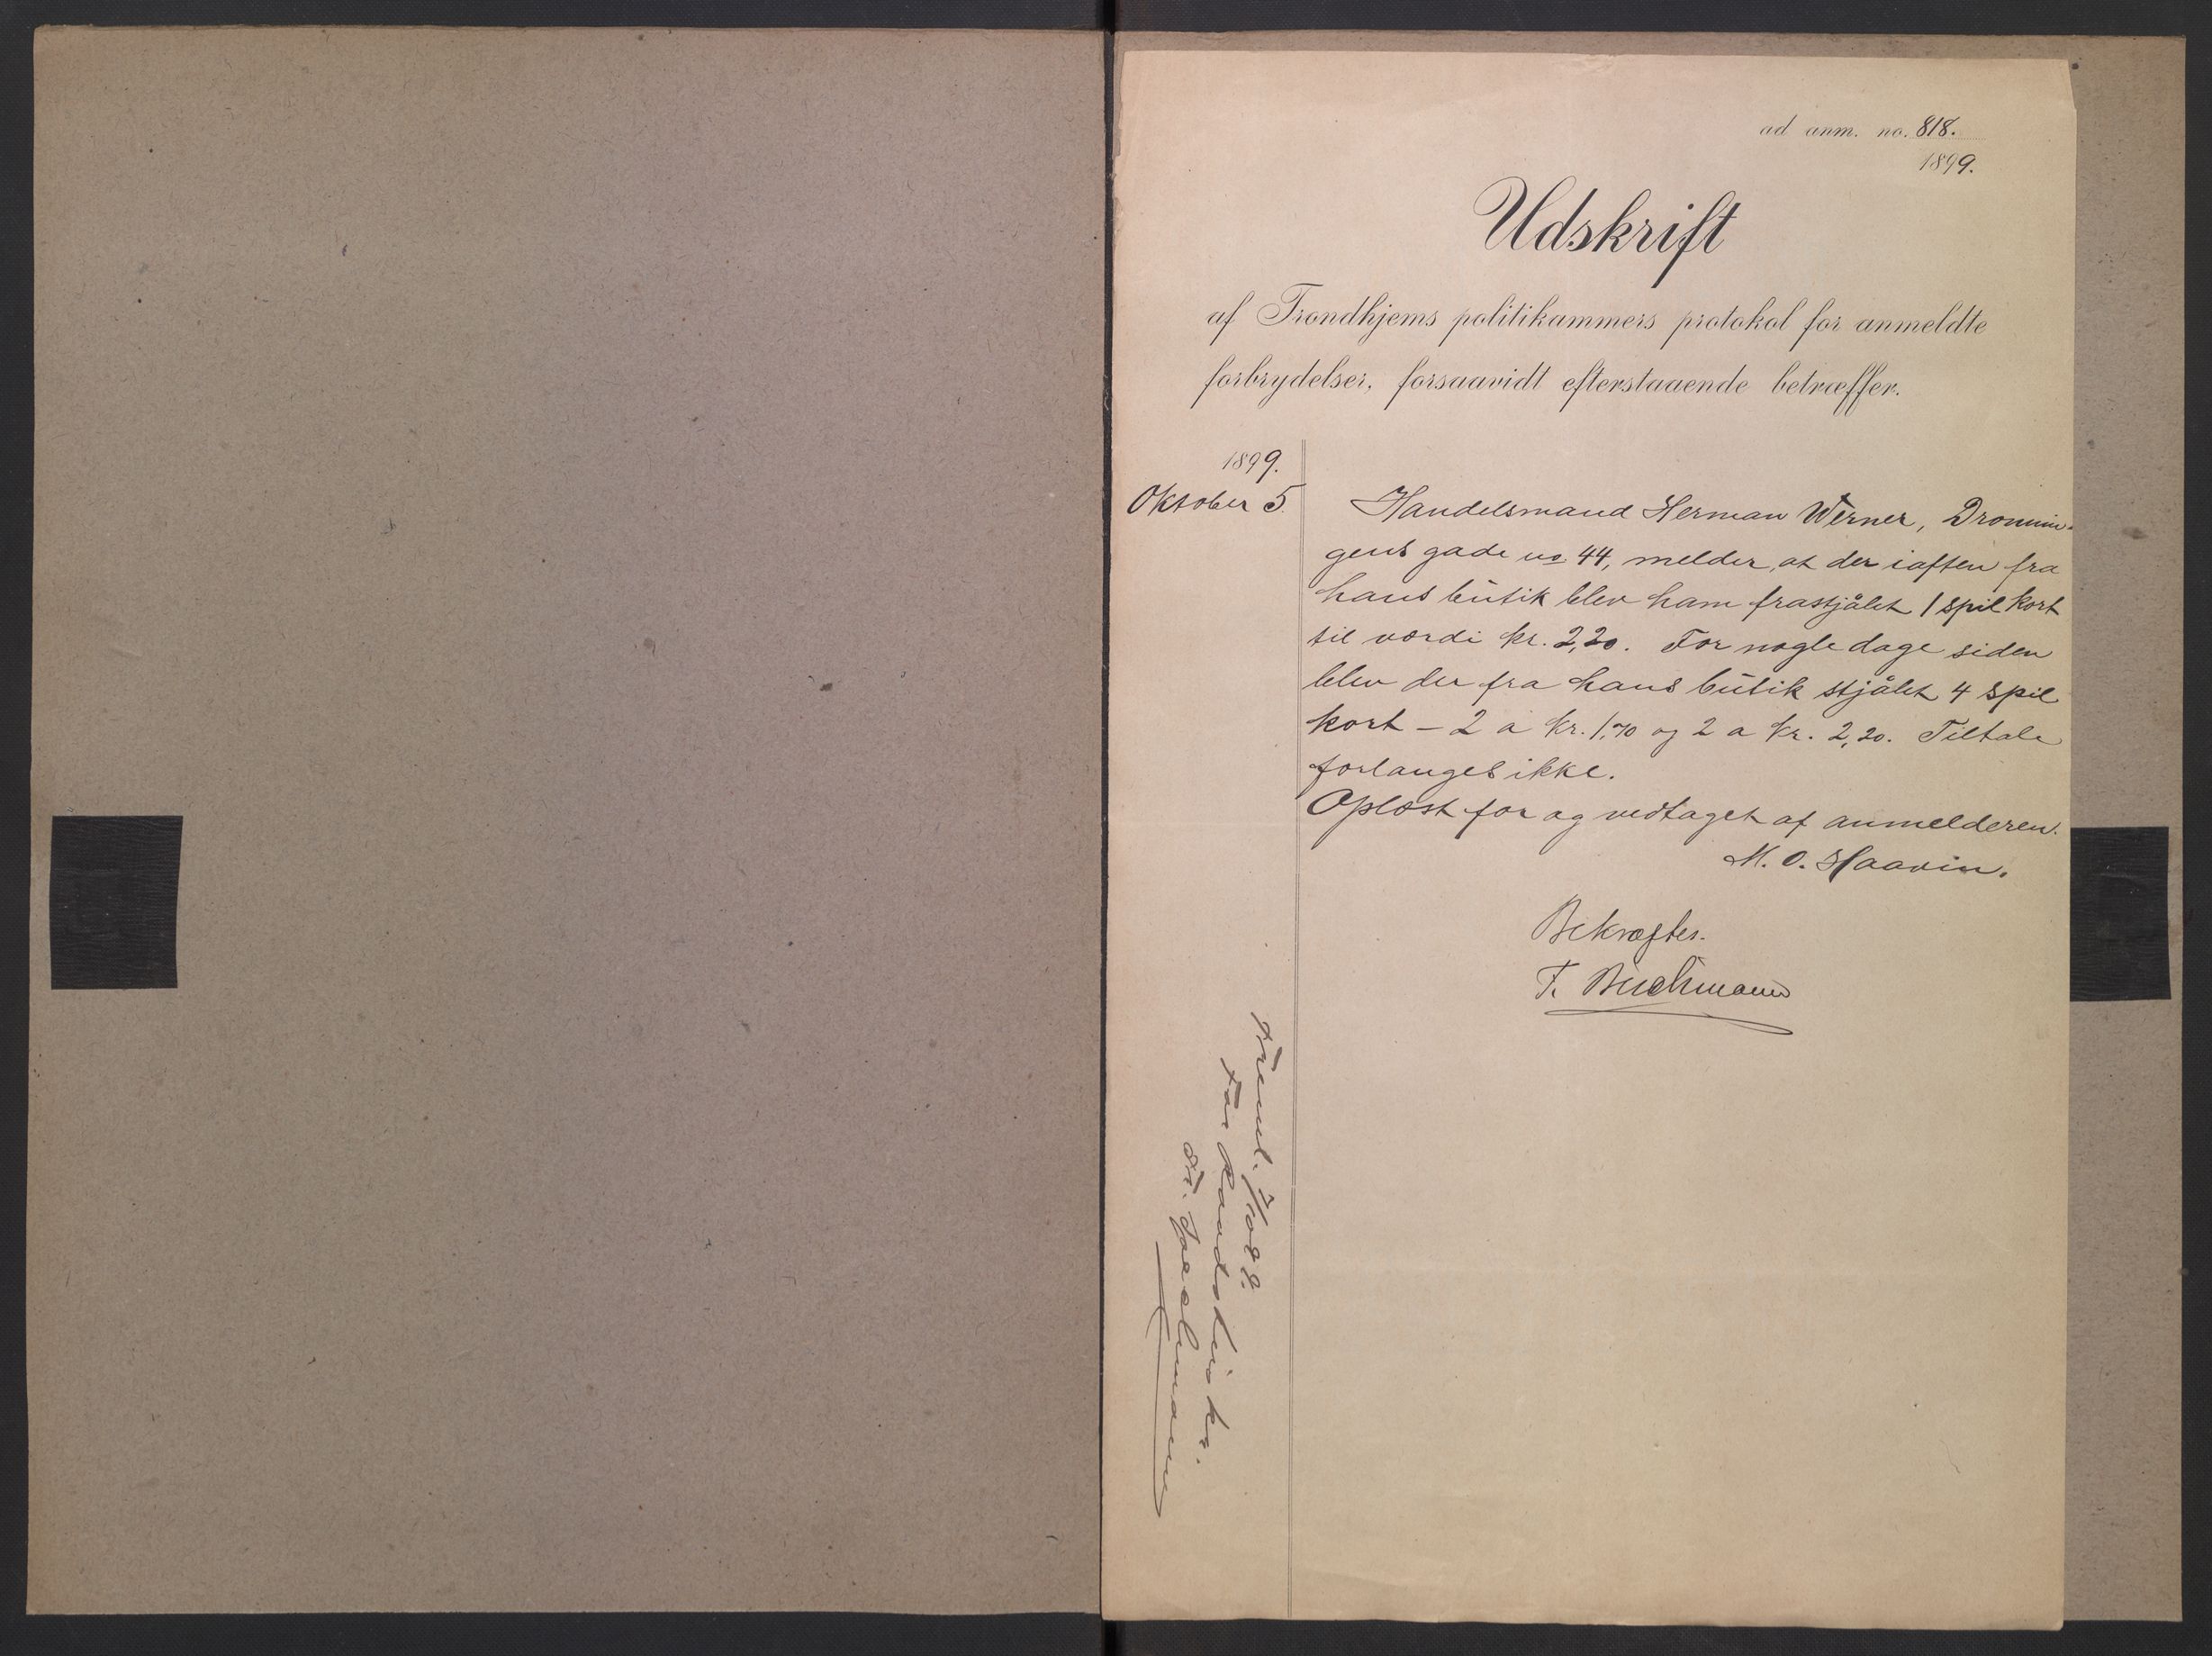 ad anm. no. 818.
1899.
Udskrift
af Trondhjems politikammers protokol for anmeldte
forbrydelser, forsaavidt efterstaaende betræffer.
1899.
Oktober 5.
Handelsmand Herman Werner, Dronnin-
gens gade no 44, melder, at der iaften fra
hans butik blev ham frastjålet 1 spil kort
til værdi kr. 2,20. For nogle dage siden
blev der fra hans butik stjålet 4 spil
kort – 2 a kr. 1,70 og 2 a kr. 2,20. Tiltale
forlanges ikke.
Oplæst for og vedtaget af anmelderen.
M. O. Haavin.
Bekræftes.
T. Buchmann
Freml.
For